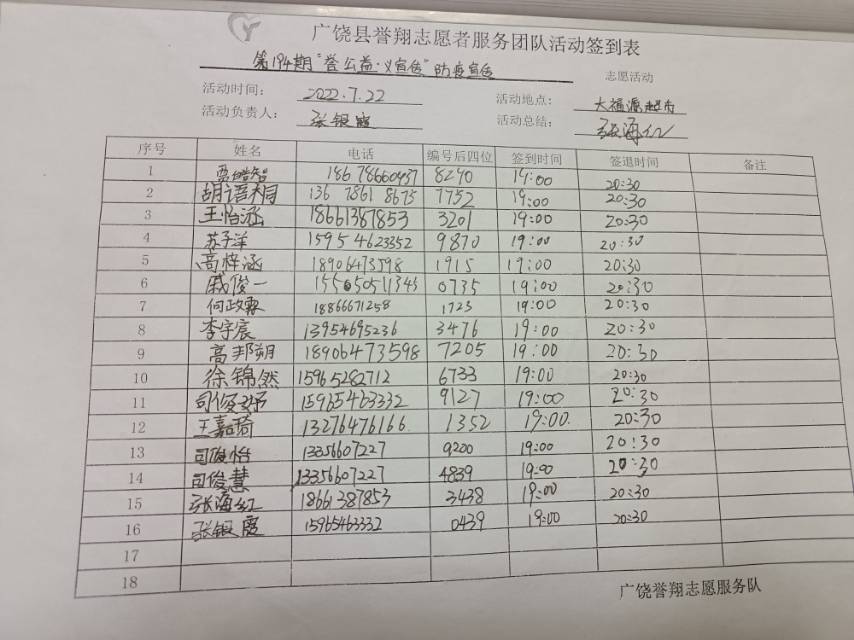 广饶县誉翔志愿者服务团队活动签到表
第194期"誉公益·义宣传"防疫宣传 志愿活动
活动时间： 2022.7.22 活动地点： 大福源超市
活动负责人： 张银霞 活动总结： 张海红
序号 姓名 电话 编号后四位 签到时间 签退时间 备注
1 18678660937 8290 19:00 20:30
2 胡语桐 136 7861 8675 7752 19:00 20:30
3 王怡涵 18661387853 3201 19:00 20:30
4 苏子洋 15954623352 9870 19:00 20:30
5 高梓涵 18906473598 1915 19:00 20:30
6 戚俊一 15505051343 0735 19:00 20:30
7 何政霖 18866671258 1723 19:00 20:30
8 李宇宸 13954695236 3476 19:00 20:30
9 高邦朔 18906473598 7205 19:00 20:30
10 徐锦然 15965282712 6733 19:00 20:30
11 司俊妤 15965463332 9127 19:00 20:30
12 王嘉琦 13276476166 1352 19:00 20:30
13 司俊怡 13356607227 9200 19:00 20:30
14 司俊慧 13356607227 4839 19:00 20:30
15 张海红 18661387853 3438 19:00 20:30
16 张银霞 15965463332 0439 19:00 20:30
17
18
广饶誉翔志愿服务队